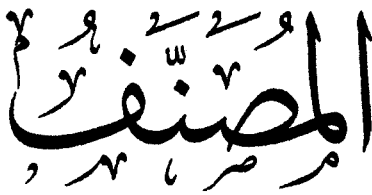 المُصَنَّف